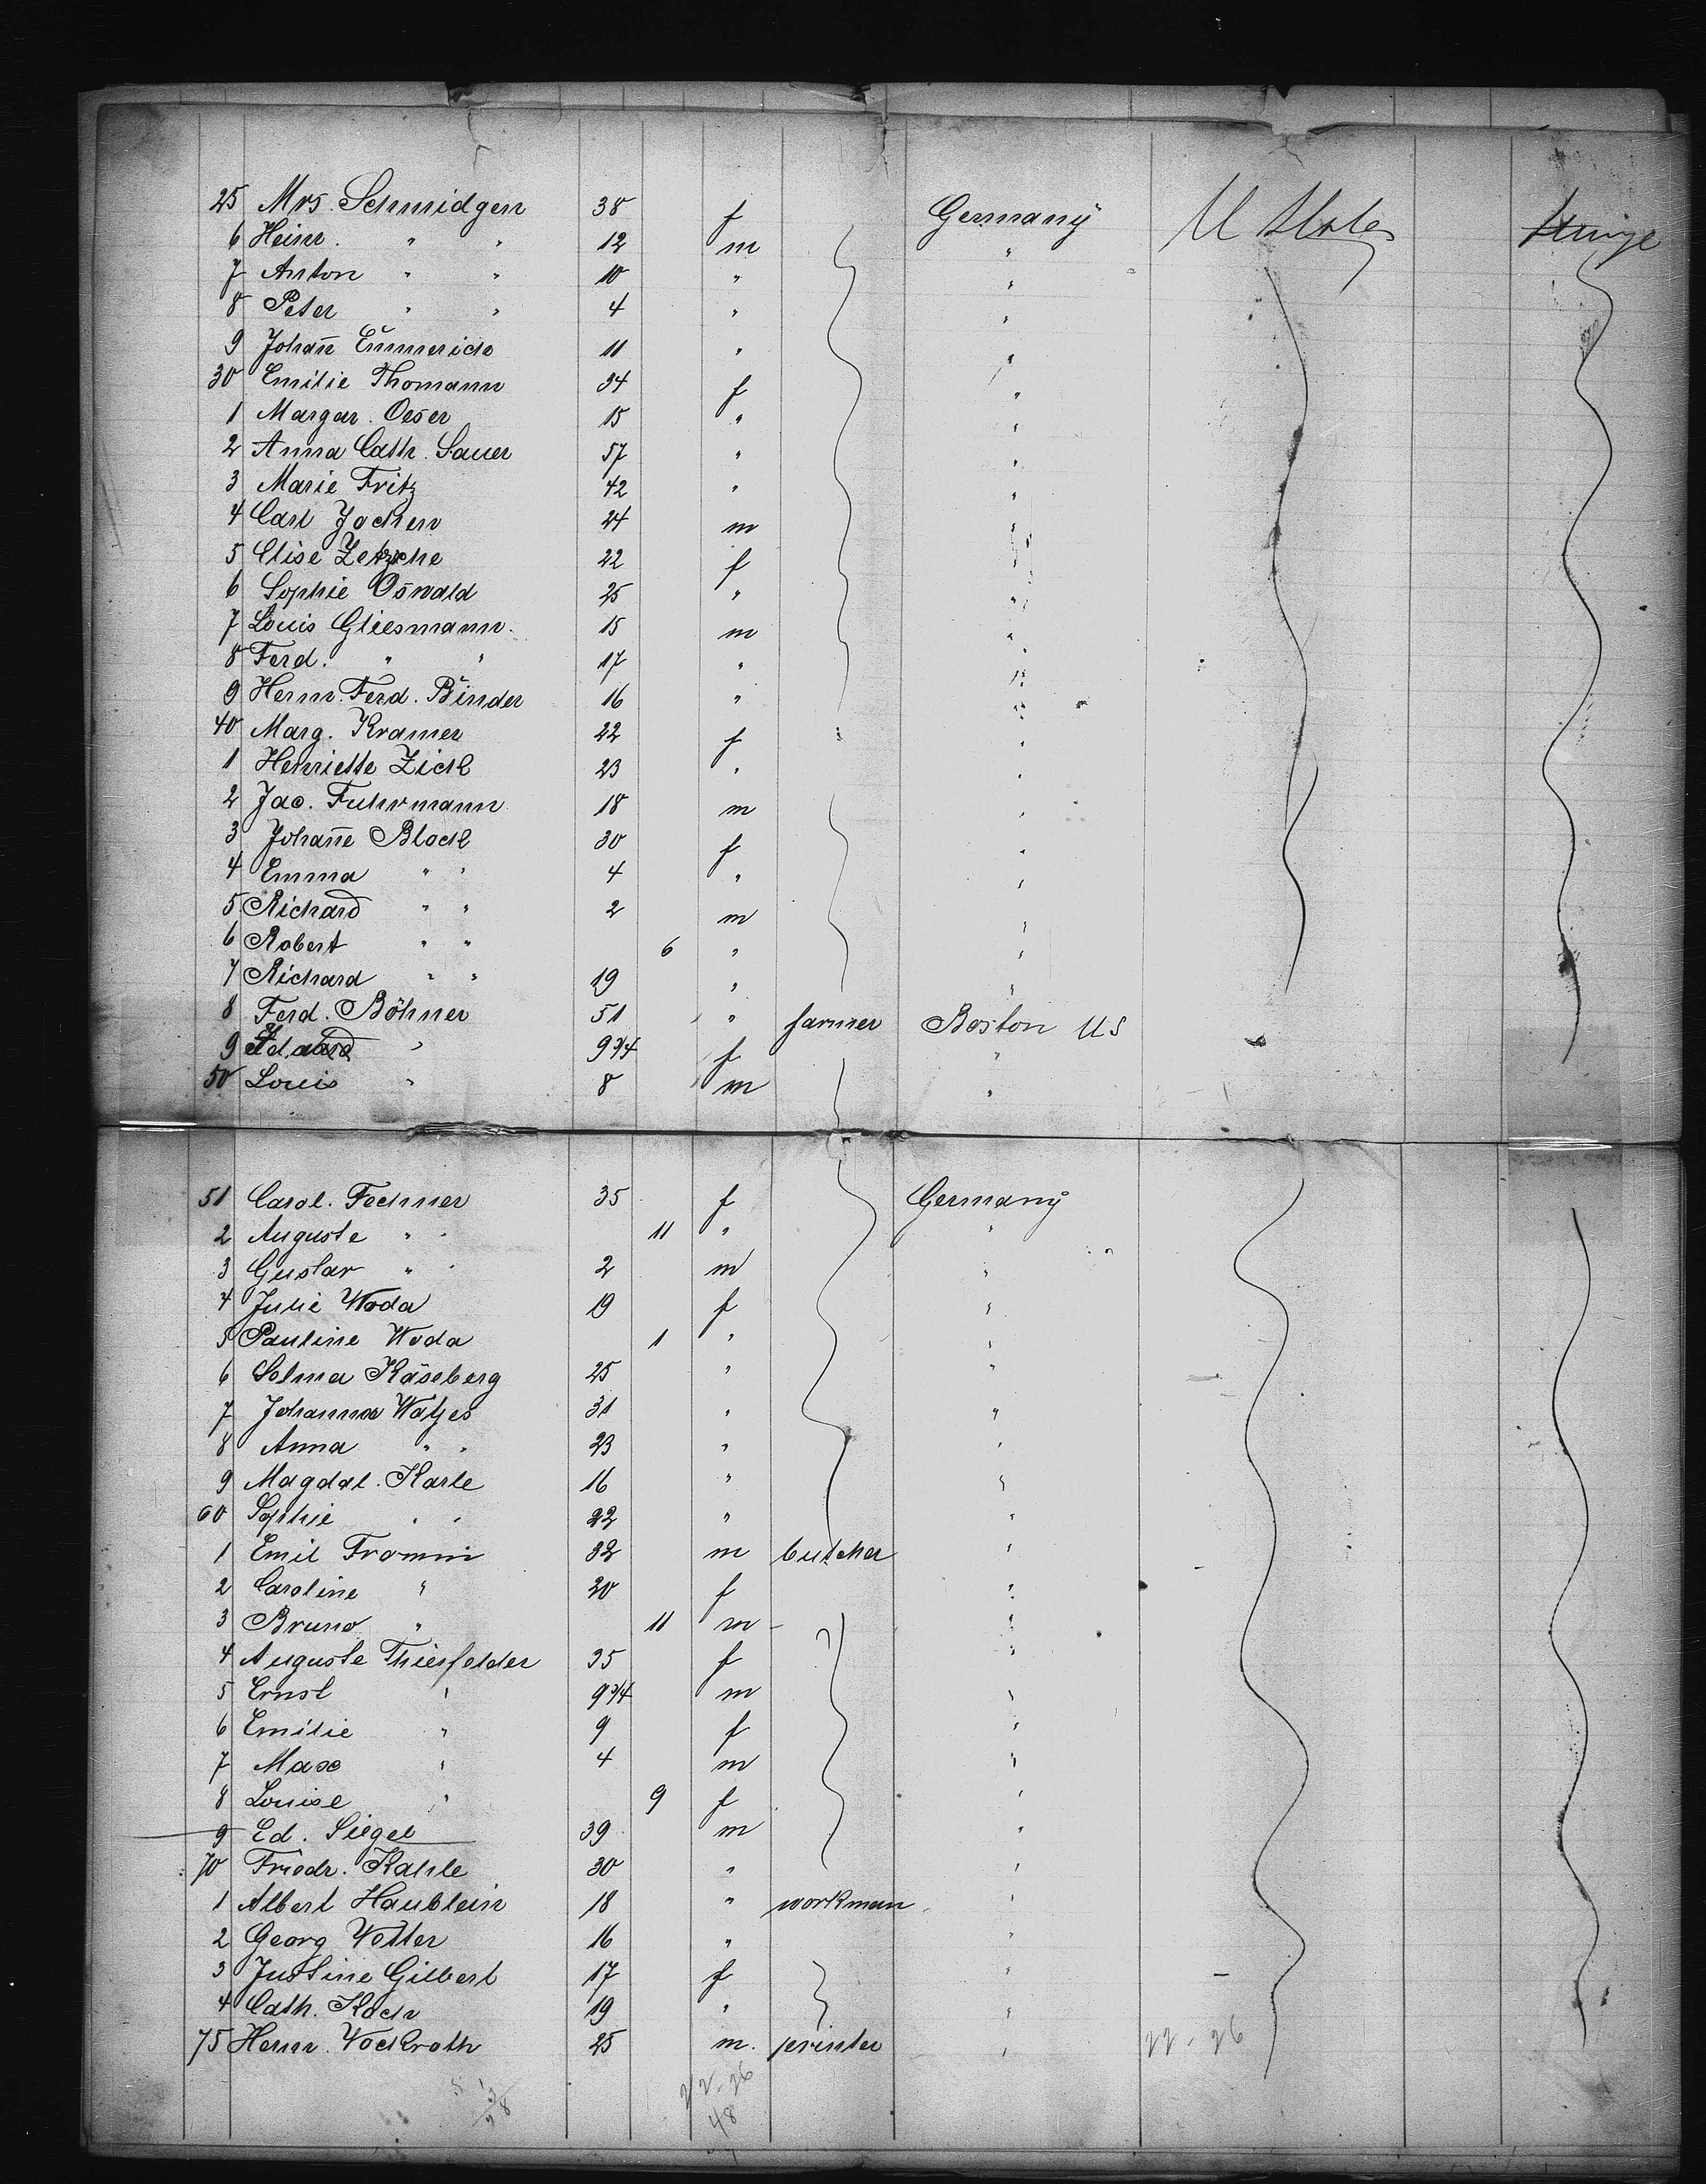 25 Mrs. Schmidgen 38 f Germany U States
6 Heinr. " " 12 m "
7 Anton " " 10 " "
8 Peter " " 4 " "
9 Johañ Emmerich 11 " "
30 Emilie Thomann 34 f "
1 Margar. Oeser 15 " "
2 Anna Cath. Sauer 57 " "
3 Marie Fritz 42 " "
4 Carl Jochen 24 m "
5 Elise Zetzsche 22 f "
6 Sophie Oswald 25 " "
7 Louis Gliesmann. 15 m "
8 Ferd. " " 17 " "
9 Herm. Ferd. Binder 16 " "
40 Marg. Kramer 22 f "
1 Henriette Zickl 23 " "
2 Jac. Fuhrmann 18 m "
3 Johañe Block 30 f "
4 Emma " " 4 " "
5 Richard " " 2 m "
6 Robert " " 6 " "
7 Richard " " 19 " "
8 Ferd. Böhner 51 " farmer Boston US
9 " 9 3/4 f "
50 Louis " 8 m "
51 Carol. Fechner 35 f Germany
2 Auguste " " 11 " "
3 Gustav " " 2 m "
4 Julie Woda 19 f "
5 Pauline Woda 1 " "
6 Selma Käseberg 25 " "
7 Johanna Watjes 31 " "
8 Anna " " 23 " "
9 Magdal. Karle 16 " "
60 Sophie " " 22 " "
1 Emil Fromm 32 m butcher "
2 Caroline " 20 f "
3 Bruno " 11 m "
4 Auguste Thierfelder 35 f "
5 Ernst " 9 3/4 m "
6 Emilie " 9 f "
7 Max " 4 m "
8 Louise " 9 f "
9 Ed. Siegel 39 m "
70 Friedr. Kahle 30 " "
1 Albert Haublein 18 " workman "
2 Georg Wolter 16 " "
3 Justine Gilbert 17 f "
4 Cath. Koch 19 " "
75 Herm. Vockroth 25 m. printer " 22-26
22-26
48